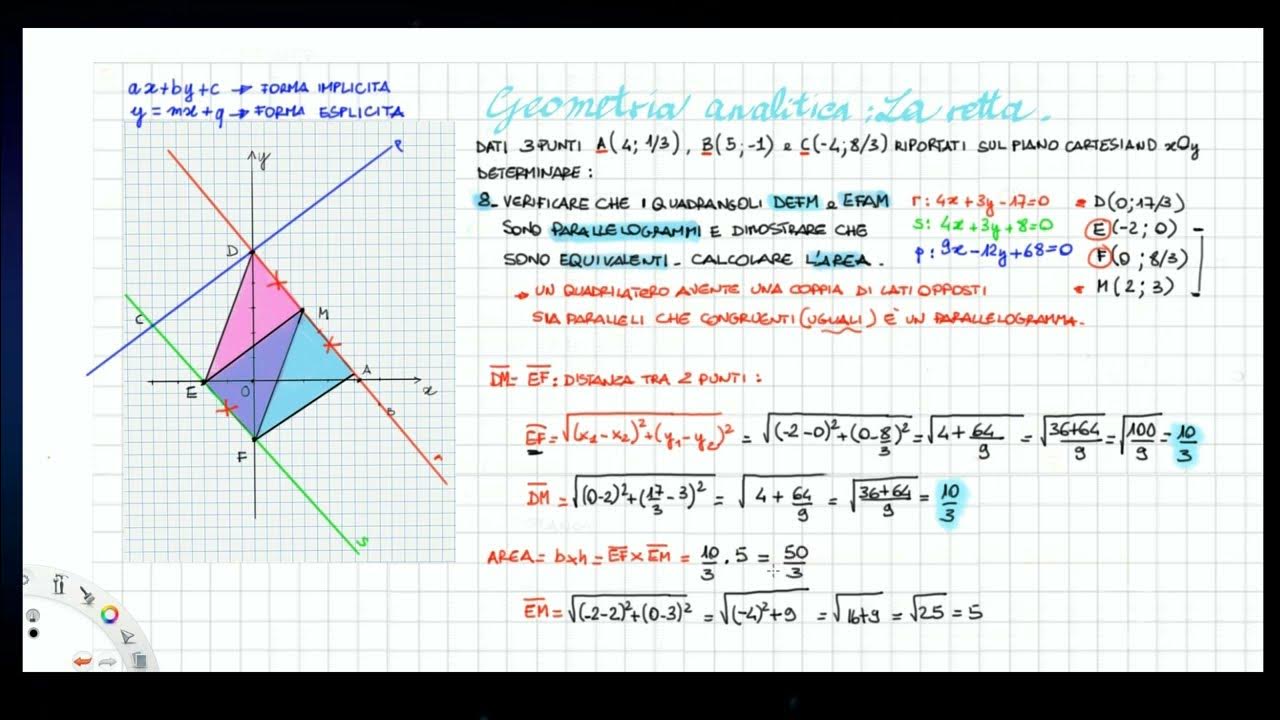 ax+by+c → FORMA IMPLICITA
y = mx+q → FORMA ESPLICITA
Geometria analitica: La retta.
DATI 3 PUNTI A(4; 1/3), B(5; -1) e C(-4; 8/3) RIPORTATI SUL PIANO CARTESIANO xOy
DETERMINARE:
8- VERIFICARE CHE I QUADRANGOLI DEFM e EFAM
SONO PARALLELOGRAMMI E DIMOSTRARE CHE
SONO EQUIVALENTI - CALCOLARE L'AREA.
r: 4x+3y-17=0
s: 4x+3y+8=0
p: 9x-12y+68=0
D(0; 17/3)
E(-2; 0)
F(0; 8/3)
M(2; 3)
→ UN QUADRILATERO AVENTE UNA COPPIA DI LATI OPPOSTI
SIA PARALLELI CHE CONGRUENTI (UGUALI) E' UN PARALLELOGRAMMA.
DM = EF: DISTANZA TRA 2 PUNTI:
EF = √(x₁-x₂)²+(y₁-y₂)² = √(-2-0)²+(0-8/3)² = √4+64/9 = √36+64/9 = √100/9 = 10/3
DM = √(0-2)²+(17/3-3)² = √4+64/9 = √36+64/9 = 10/3
AREA = bxh = EF x EM = 10/3 . 5 = 50/3
EM = √(-2-2)²+(0-3)² = √(-4)²+9 = √16+9 = √25 = 5
y
p
D
M
C
A
E
O
x
B
F
r
s